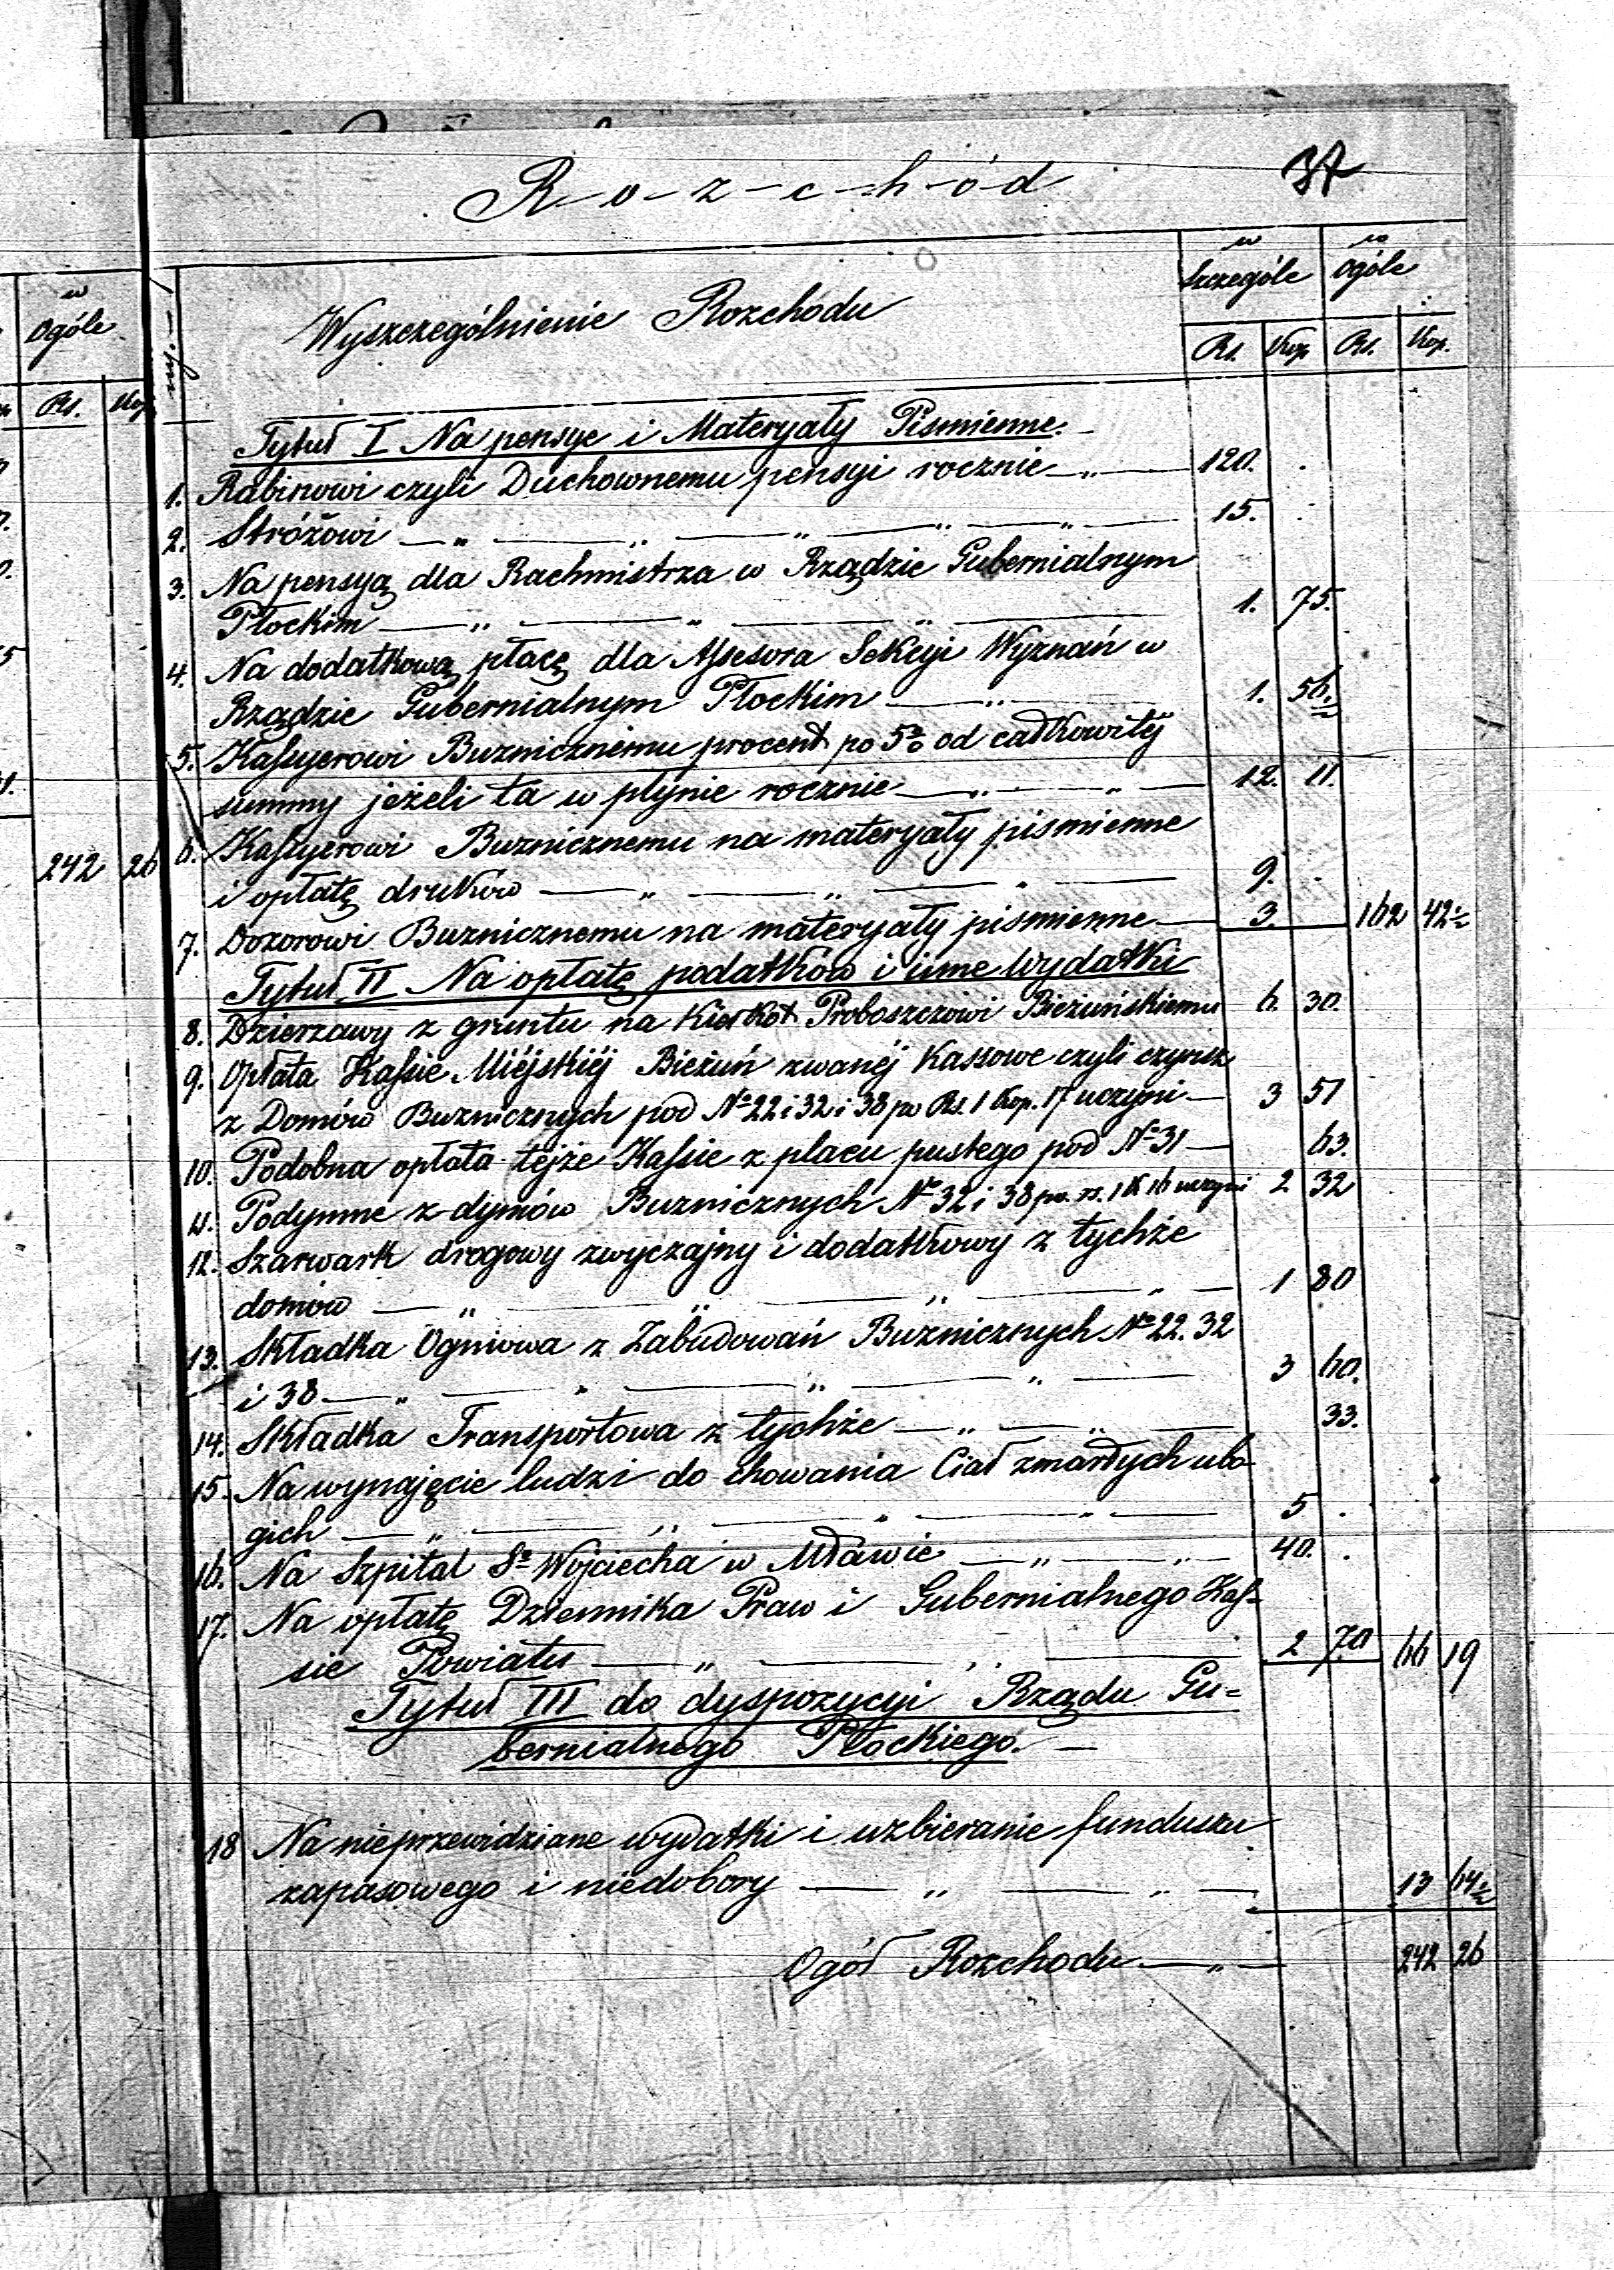 R-o-z-c-h-ó-d
37
w Ogóle
Rs. Kop
242 26
Wyszczególnienie Rozchodu
w Szczególe
w Ogóle
Rs. Kop Rs. Kop.
Tytuł I Na pensye i Materyały Piśmienne.
1. Rabinowi czyli Duchownemu pensyi rocznie — „ — 120. .
2. Stróżowi — „ — „ — „ — „ — „ — 15. .
3. Na pensyą dla Rachmistrza w Rządzie Gubernialnym
Płockim — „ — „ — „ — 1. 75.
4. Na dodatkową płacę dla Assesora Sekcyi Wyznań w
Rządzie Gubernialnym Płockim — „ — 1. 56.½
5. Kassyerowi Buznicznemu procent po 5% od całkowitéj
summy jeżeli ta w płynie rocznie — „ — „ — 12. 11.
6. Kassyerowi Buznicznemu na materyały piśmienne
i opłatę druków — „ — „ — „ — 9. .
7. Dozorowi Buznicznemu na materyały piśmienne — 3. 162 42½
Tytuł II Na opłatę podatków i inne wydatki
8. Dzierzawy z gruntu na Kierkot Proboszczowi Bieżuńskiemu 6. 30.
9. Opłata Kassie Miéjskiéj Bieżuń zwanéj Kassowe czyli czynsz
z Domów Buznicznych pod No 22 i 32 i 38 po Rs. 1 Kop. 17 uczyni — 3 51
10. Podobna opłata tejże Kassie z placu pustego pod No 31 — 63.
11. Podymne z dymów Buznicznych No 32 i 38 po rs. 1 K 16 uczyni 2 32
12. Szarwark drogowy zwyczajny i dodatkowy z tychże
domów — „ — „ — „ — „ — 1 80
13. Składka Ogniowa z Zabudowań Buznicznych No 22. 32
i 38 — „ — „ — „ — „ — 3 60.
14. Składka Transportowa z tychże — „ — „ — 33.
15. Na wynajęcie ludzi do chowania Ciał zmarłych ubo-
gich — „ — „ — „ — „ — 5 .
16. Na Szpital So Wojciecha w Mławie — „ — „ — 40. .
17. Na opłatę Dziennika Praw i Gubernialnego Kas-
sie Powiatu — „ — „ — 2 70 66 19
Tytuł III do dyspozycyi Rządu Gu-
bernialnego Płockiego. —
18 Na nieprzewidziane wydatki i uzbieranie funduszu
zapasowego i niedobory — „ — „ — 13 64½
Ogół Rozchodu — „ — 242 26